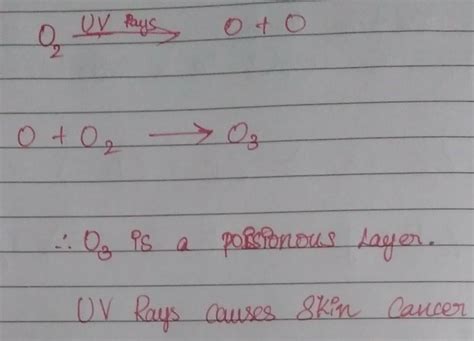 O₂ UV Rays→ O + O
O + O₂ → O₃
∴ O₃ is a poissionous Layer.
UV Rays causes Skin Cancer